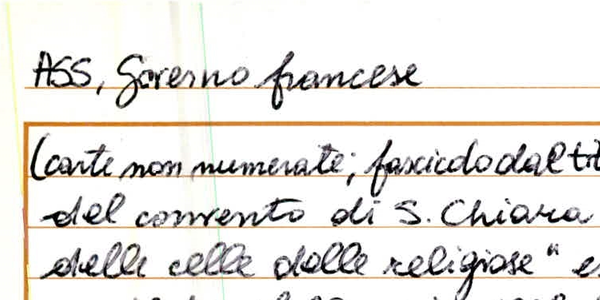 ASS, Governo francese
(carte non numerate; fascicolo dal tit
del convento di S. Chiara
delle celle dalle religiose" es